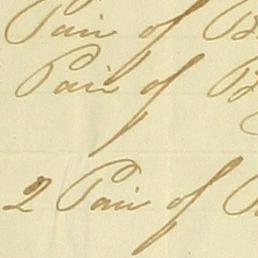 Pair of B
Pair of B
2 Pair of